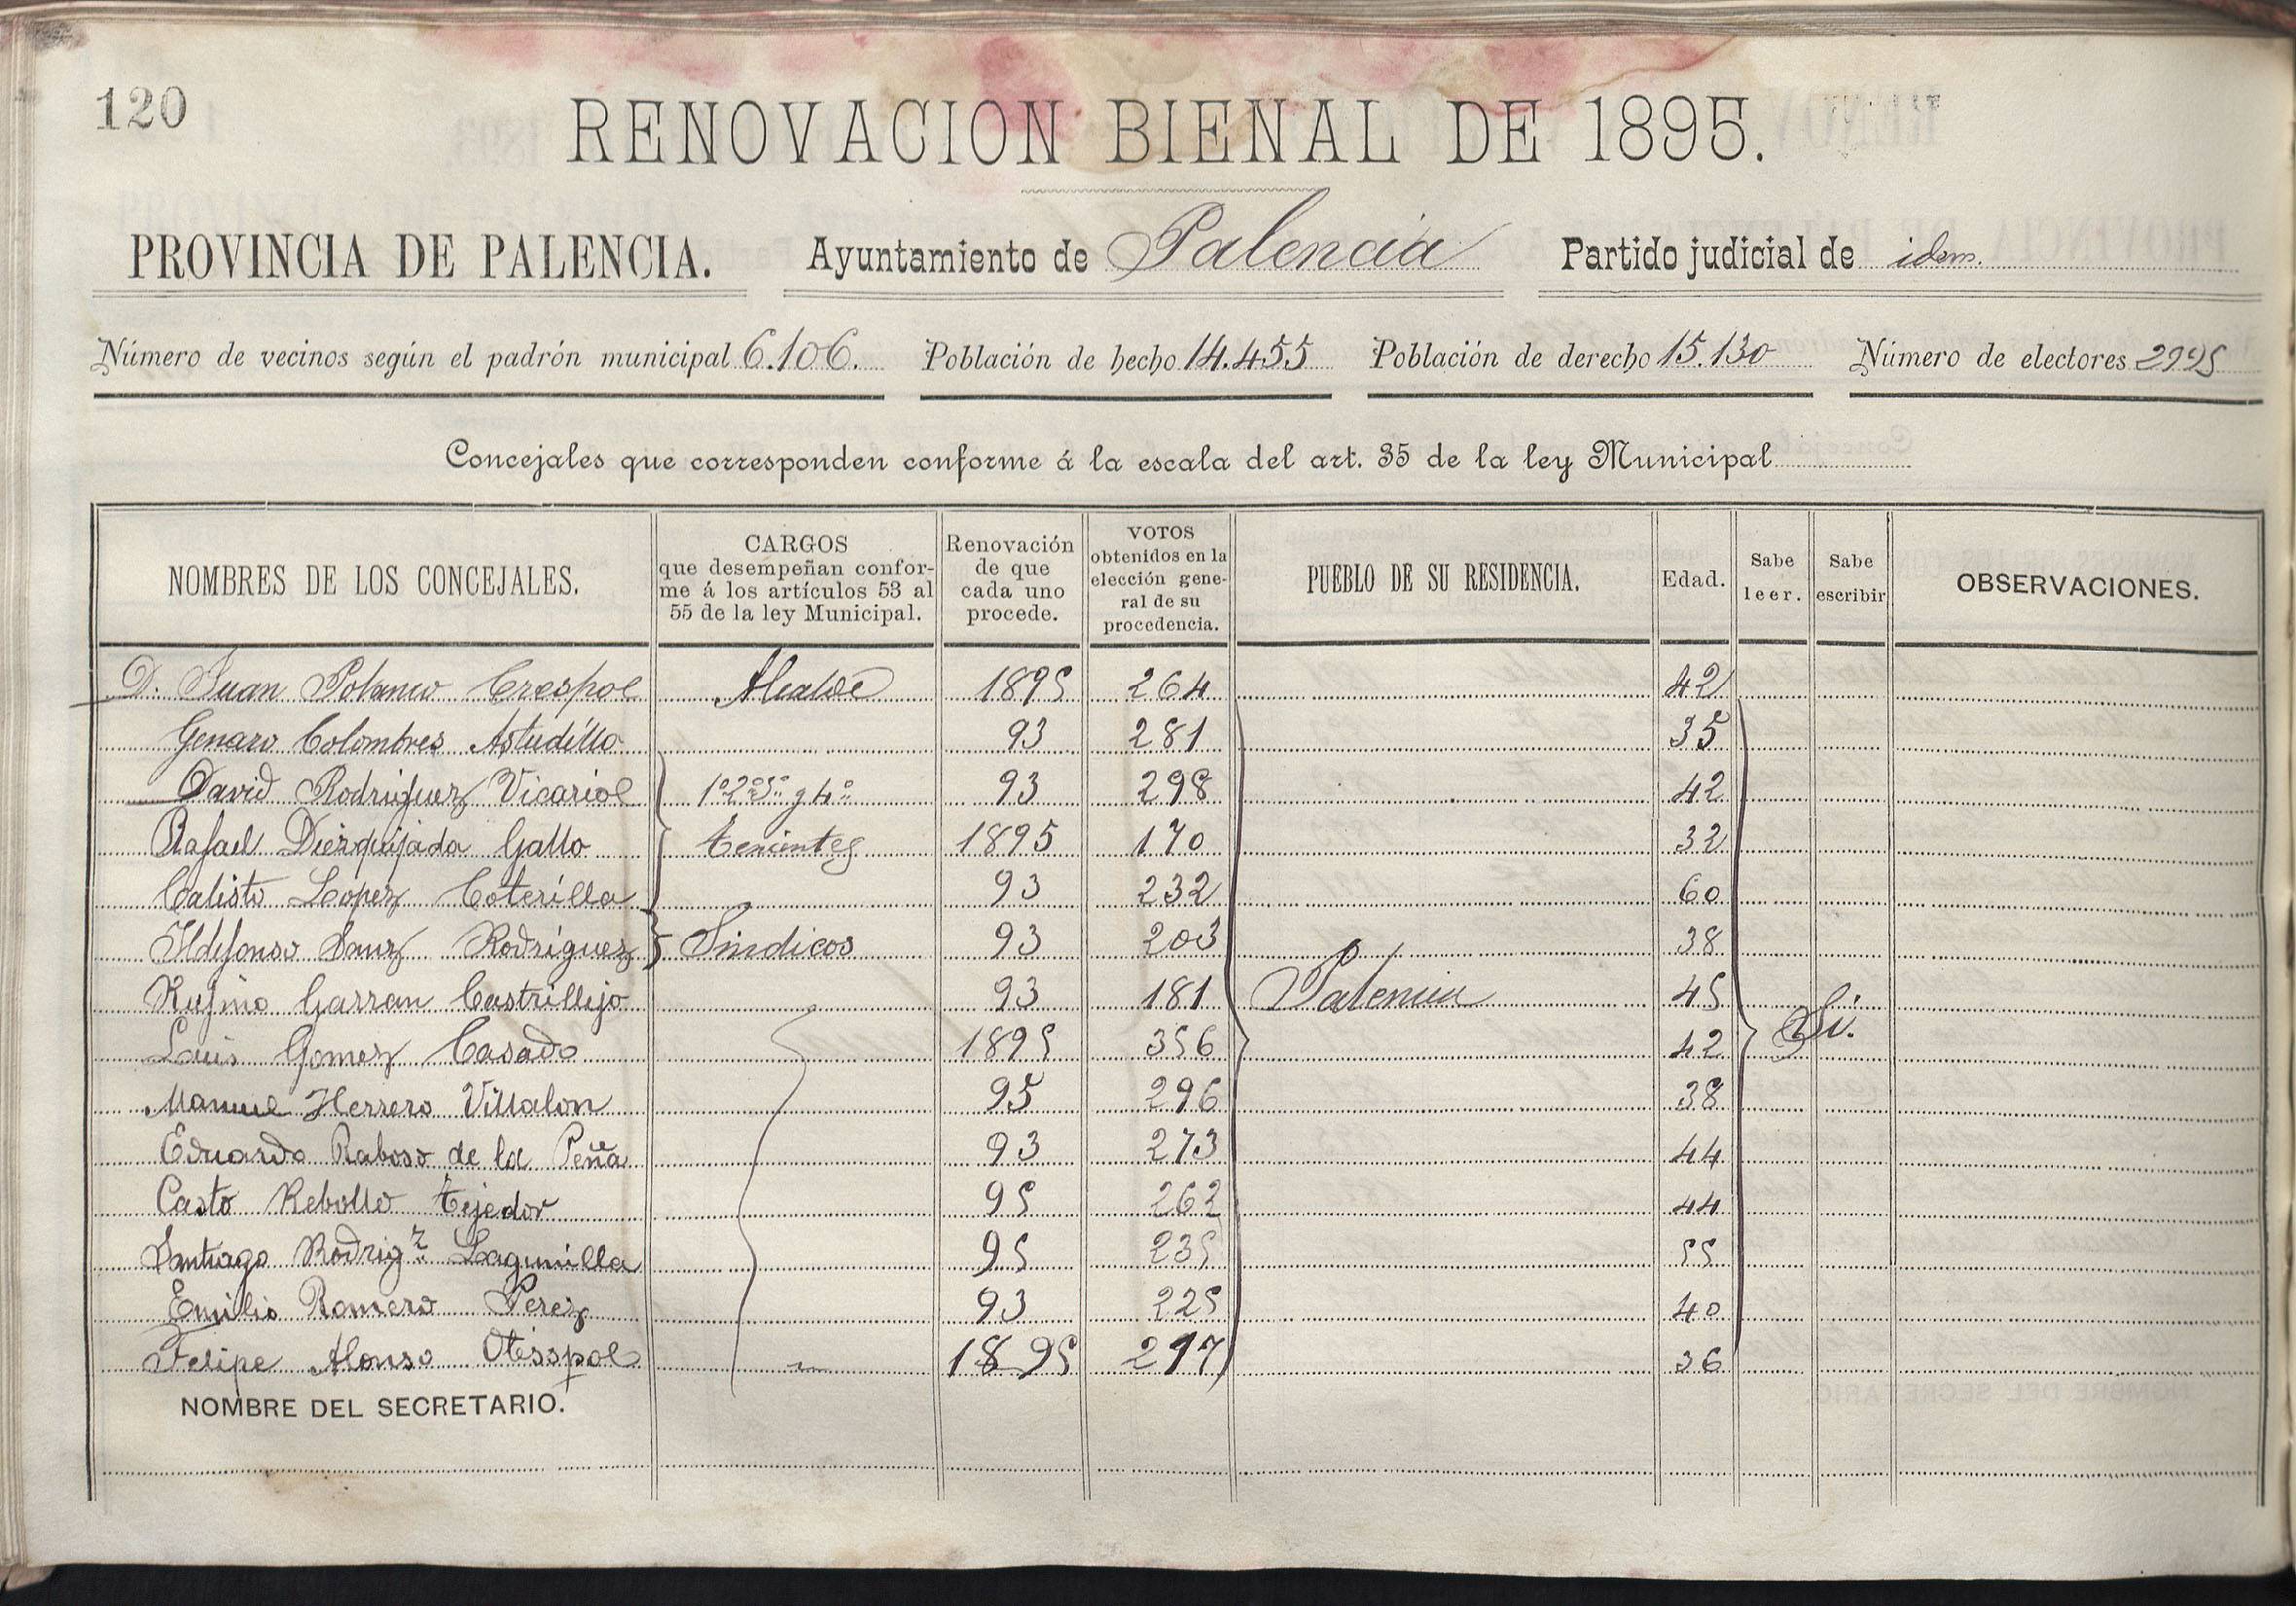 120
RENOVACION BIENAL DE 1895.
PROVINCIA DE PALENCIA. Ayuntamiento de Palencia Partido judicial de idem.
Número de vecinos según el padrón municipal 6.106. Población de hecho 14.455 Población de derecho 15.130 Número de electores 2995
Concejales que corresponden conforme á la escala del art. 35 de la ley Municipal
NOMBRES DE LOS CONCEJALES.
CARGOS
que desempeñan confor-
me á los artículos 53 al
55 de la ley Municipal.
Renovación
de que
cada uno
procede.
VOTOS
obtenidos en la
elección gene-
ral de su
procedencia.
PUEBLO DE SU RESIDENCIA.
Edad.
Sabe
leer.
Sabe
escribir
OBSERVACIONES.
D. Juan Polanco Crespo Alcalde 1895 264 42
Genaro Colombres Astudillo 93 281 35
David Rodriguez Vicario 1º 2º 3º y 4º 93 298 42
Rafael Diezquijada Gallo tenientes 1895 170 32
Calisto Lopez Coterilla 93 232 60
Ildefonso Sanz Rodriguez Sindicos 93 203 38
Rufino Garran Castrillejo 93 181 Palencia 45
Luis Gomez Casado 1895 356 42 Si.
Manuel Herrero Villalon 95 296 38
Eduardo Raboso de la Peña 93 273 44
Casto Rebollo tejedor 95 262 44
Santiago Rodrigz Lagunilla 95 235 55
Emilio Romero Perez 93 225 40
Felipe Alonso 1895 36
NOMBRE DEL SECRETARIO.